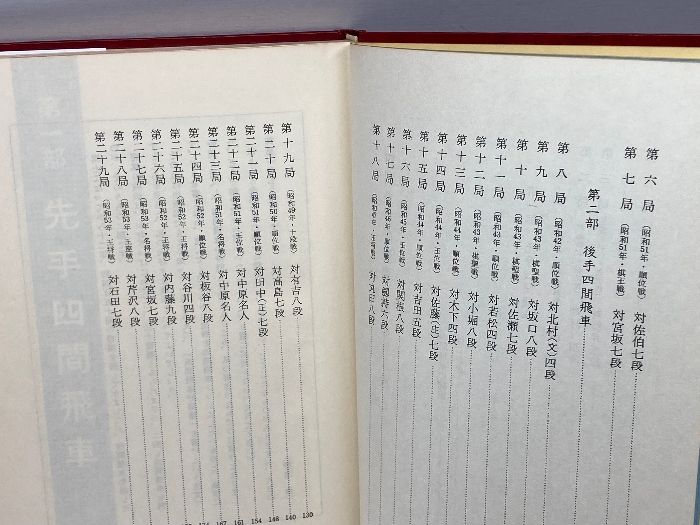 第六局（昭和51年・順位戦）対佐伯七段
第七局（昭和51年・棋王戦）対宮坂七段
第二部 後手四間飛車
第八局（昭和42年・順位戦）対北村(文)四段
第九局（昭和43年・棋聖戦）対坂口八段
第十局（昭和43年・棋聖戦）対佐瀬七段
第十一局（昭和43年・順位戦）対若松四段
第十二局（昭和43年・棋聖戦）対小堀八段
第十三局（昭和44年・順位戦）対木下四段
第十四局（昭和44年・王位戦）対佐藤(庄)七段
第十五局（昭和44年・順位戦）対吉田五段
第十六局（昭和45年・王位戦）対関根八段
第十七局（昭和46年・順位戦）対 六段
第十八局 対丸田八段
第十九局（昭和49年・十段戦）対有吉八段 130
第二十局（昭和50年・順位戦）対高島七段 140
第二十一局（昭和51年・順位戦）対田中(正)七段 148
第二十二局（昭和51年・王位戦）対中原名人 154
第二十三局（昭和51年・名将戦）対中原名人 161
第二十四局（昭和52年・順位戦）対板谷八段 167
第二十五局（昭和52年・王将戦）対谷川四段
第二十六局（昭和52年・王将戦）対内藤九段
第二十七局（昭和53年・名将戦）対宮坂七段
第二十八局（昭和53年・王座戦）対芹沢八段
第二十九局（昭和53年・王将戦）対石田七段
四間飛車